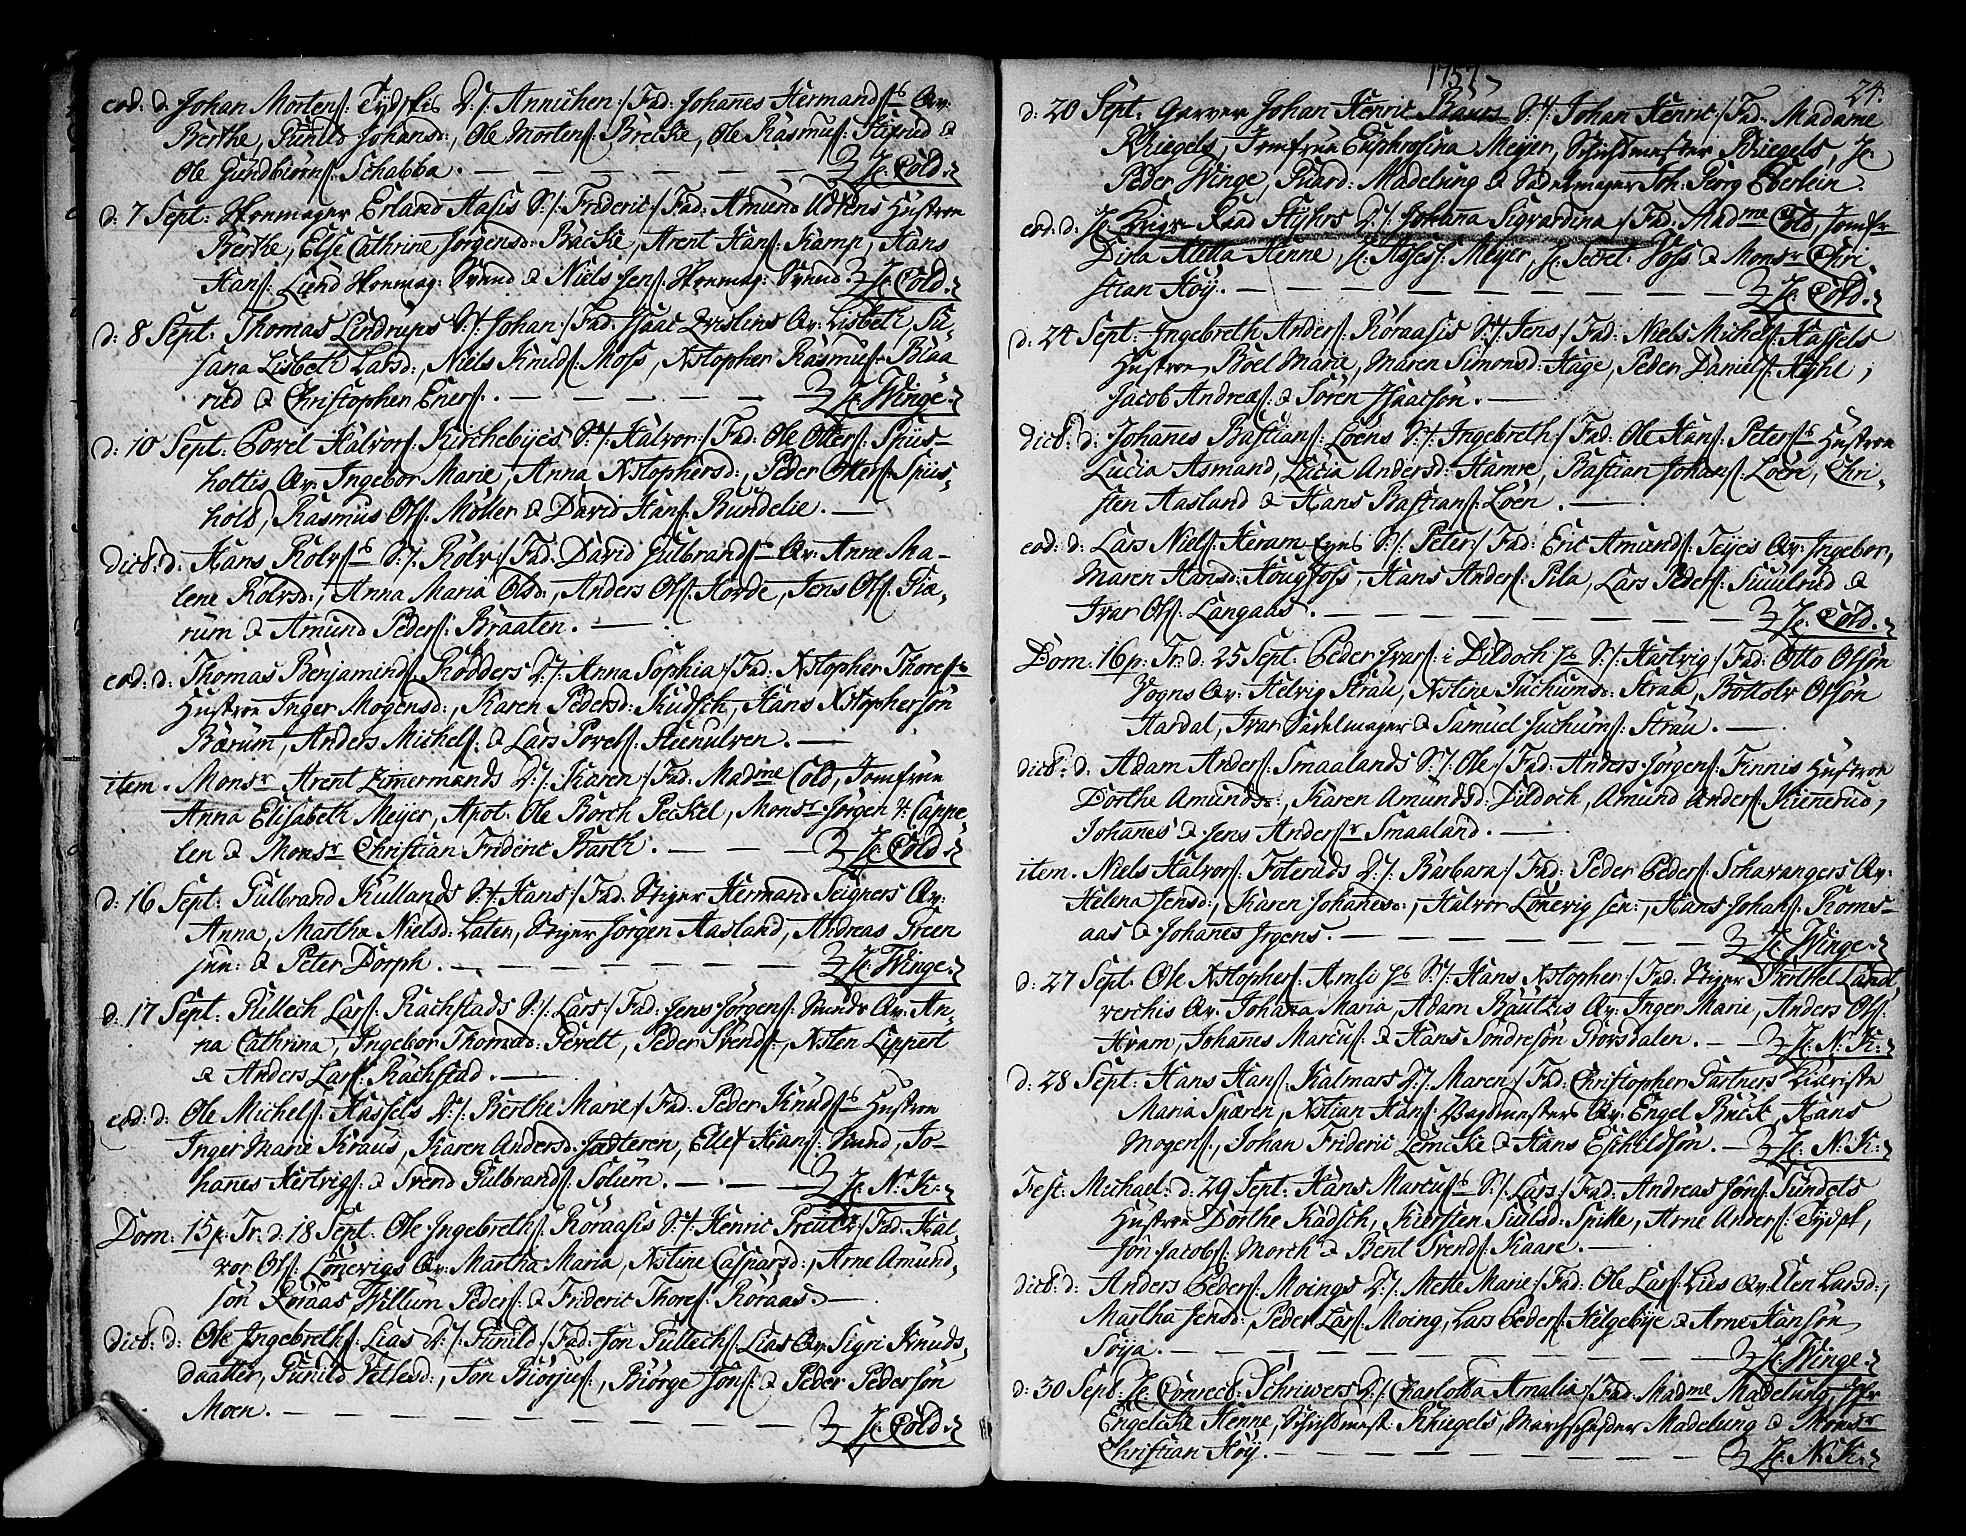 eod: d: Johan Mortens: Tydskes D:/: Annichen:/ Fad: Johannes Hermands Qv:
Berthe, Gunild Johansd:, Ole Mortens: Brecke, Ole Rasmus:
Ole Gundbiörns: Schabba. H: Cold.
d: 7 Sept: Erland Aasis S:/: Frideric:/ Fad: Amund Hustroe
Berthe, Else Cathrine Jörgensd: Backe, Arent Hans: Kamp, Hans
Hans: Lund & Niels Jens: H: Cold.
d: 8 Sept: Thomas Lindrups S:/: Johan:/ Fad: Isaac Qv: Lisbeth, Su-
sana Lisbeth Larsd:, Niels Knuds: Moss, Xstopher Rasmus: Blaa
rud & Christopher Eners: H: Winge.
d: 10 Sept: Povel Halvors: Kirchebyes S:/: Halvor:/ Fad: Ole Otters: Spiis-
holtis Qv: Ingebor Marie, Anna Xstophersd:, Peder Otters: Spiis-
hold, Rasmus Ols: Möller & David Hans: Bundelie.
dict: d: Hans Rolvs: S:/: Rolv:/ Fad: David Gulbrands: Qv: Anne Ma-
lene Rolvsd:, Anna Maria Olsd:, Anders Ols: Horde, Jens Ols: Fla-
rum & Amund Peders: Braaten.
eod: d: Thomas Benjamins: Rödders D:/: Anna Sophia:/ Fad: Xstopher Thores:
Hustroe Inger Mogensd:, Karen Pedersd: Kudsch, Hans Xstophersön
Bærum, Anders Michels: & Lars Povels: Steenulven.
item. Monsr Arent Zimmermands D:/: Karen:/ Fad: Madme Cold, Jomfrue
Anna Elisabeth Meyer, Apot: Ole Borch Peckel, Monsr Jörgen v: Cappe-
len & Monsr Christian Frideric Barth. H: Cold.
d: 16 Sept: Gulbrand Kullands S:/: Hans:/ Fad: Stiger Herman Seigners Qv:
Anna, Marthe Nielsd: Laten, Stiger Jörgen Aasland, Andreas Green
jun: & Peter Dorph. H: Winge.
d: 17 Sept: Gullech Lars: Rachstads S:/: Lars:/ Fad: Jens Jörgens: Qv: An-
na Cathrina, Ingebor Thomasd: Gevelt, Peder Svends:, Xsten Lippert
& Anders Lars: Rachstad.
eod: d: Ole Michels: Hassels D:/: Berthe Marie:/ Fad: Peder Knuds: Hustroe
Inger Marie Kraus, Karen Andersd: Jadteren, Ellef Hans: Sund, Jo-
hanes Hertvigs: & Svend Gulbrands: Solum. H: N: K:
Dom: 15 p: Tr: d: 18 Sept: Ole Ingebreths: Röraasis S:/: Henric Preutz:/ Fad: Hal-
vor Ols: Lönevigs Qv: Martha Maria, Xstine Caspersd:, Arne Amund-
sön Röraas, Willum Peders: & Frideric Thores: Röraas.
dict: d: Ole Ingebreths: Lias D:/: Gunild:/ Fad: Jon Gullechs: Lias Qv: Sigri Knuds-
daatter, Gunild Vetlesd:, Jon Biörjus:, Biörge Jöns: & Peder Pedersön
Moen. H: Cold.
1757
24.
d: 20 Sept: Garver Johan Henric Baurs S:/: Johan Henric:/ Fad: Madame
Kriegels, Jomfrue Euphrosina Meyer, Schichtmester Kriegels, H:
Peder Winge, Guard: Madelung & Sadelmager Joh: Georg Eberlein.
eod: d: H: Krigs Raad Styhrs D:/: Johanna Sigvardina:/ Fad: Madme Cold, Jomfr
Dirla Aletta Henne, H: Assess: Meyer, H: Secret: Voss & Monsr Chri
stian Höy. H: Cold.
d: 24 Sept: Ingebreth Anders: Röraasis S:/: Jens:/ Fad: Niels Michels: Hassels
Hustroe Boel Marie, Maren Simonsd: Hage, Peder Daniels: Kyhl,
Jacob Andreas: & Sören Isacsön.
dict: d: Johannes Bastians: Loens S:/: Ingebreth:/ Fad: Ole Hans: Peters: Hustroe
Lucia Asmand, Lucia Andersd: Hamre, Bastian Johans: Loen, Chri-
sten Aasland & Hans Bastians: Loen.
eod: d: Lars Niels: Heramb Eyes S:/: Peter:/ Fad: Eric Amunds: Teyes Qv: Ingebor,
Maren Hansd: Hougfoss, Hans Anders: Pila, Lars Peders: Suulrud &
Ivar Ols: Langaas. H: Cold.
Dom: 16 p: Tr: d: 25 Sept: Peder Ivars: i Dildoch S:/: Hartvig:/ Fad: Otto Olsön
Vogns Qv: Helvig Strau, Xstine Juchumsd: Strau, Bottolv Olsön
Hardal, Ivar Sadelmager & Samuel Juchums: Strau.
dict: d: Adam Anders: Smaalands S:/: Ole:/ Fad: Anders Jörgens: Finnis Hustroe
Dorthe Amundsd:, Karen Amundsd: Dildoch, Amund Anders: Kinnerud,
Johannes & Jens Anders: Smaaland.
item. Niels Halvors: Foteruds D:/: Barbara:/ Fad: Peder Peders: Schavangers Qv:
Helena Jensd:, Karen Johannesd:, Halvor Lönevig sen:, Hans Johans: Roms-
aas & Johanes Irgens. H: Winge.
d: 27 Sept: Ole Xstophers: Amli S:/: Hans Xstopher:/ Fad: Stiger Berthel Landt
verchis Qv: Johana Maria, Adam Bautzis Qv: Inger Marie, Anders Ols:
Hvam, Johannes Marcus: & Hans Sondresön Prorsdalen. H: N: K:
d: 28 Sept: Hans Hans: Kalmars D:/: Maren:/ Fad: Christopher Gartners
Maria Sparen, Xstian Hans: Vagtmesters Qv: Engel Buck, Hans
Mogens:, Johan Frideric Lemcke & Hans Eschildsön. H: N: K:
Fest: Michael: d: 29 Sept: Hans Marcus: S:/: Lars:/ Fad: Andreas Jöns: Sundets
Hustroe Dorthe Kadsch, Kiersten Siulsd: Spille, Arne Anders: Tydsk,
Jön Jacobs: Morch & Bent Svends: Kaare.
dict: d: Anders Peders: Moings D:/: Mette Marie:/ Fad: Ole Lars: Lies Qv: Elen Larsd:,
Martha Jensd:, Peder Lars: Moing, Lars Peders: Helgebye & Arne Hansön
Söya. H: Winge.
d: 30 Sept: H: Conrect: Schriwers D:/: Charlotta Amalia:/ Fad: Madme Madelung, Jfr
Engelche Henne, Schichtmest: Kriegels, Marchscheider Madelung & Monsr
Christian Höy. H: N: K: